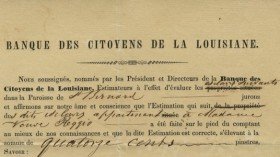 BANQUE DES CITOYENS DE LA LOUISIANE.
Nous soussignés, nommés par les Président et Directeurs de la Banque des
Citoyens de la Louisiane, Estimateurs à l'effet d'évaluer les
dans la Paroisse de St Bernard
et affirmons sur notre âme et conscience que l'Estimation qui suit
appartenant à Madame
Veuve a été faite sur le pied du comptant
au mieux de nos connaissances et que la dite Estimation est correcte, s'élevant à la
somme de quatorze cents piastres,
Savoir :